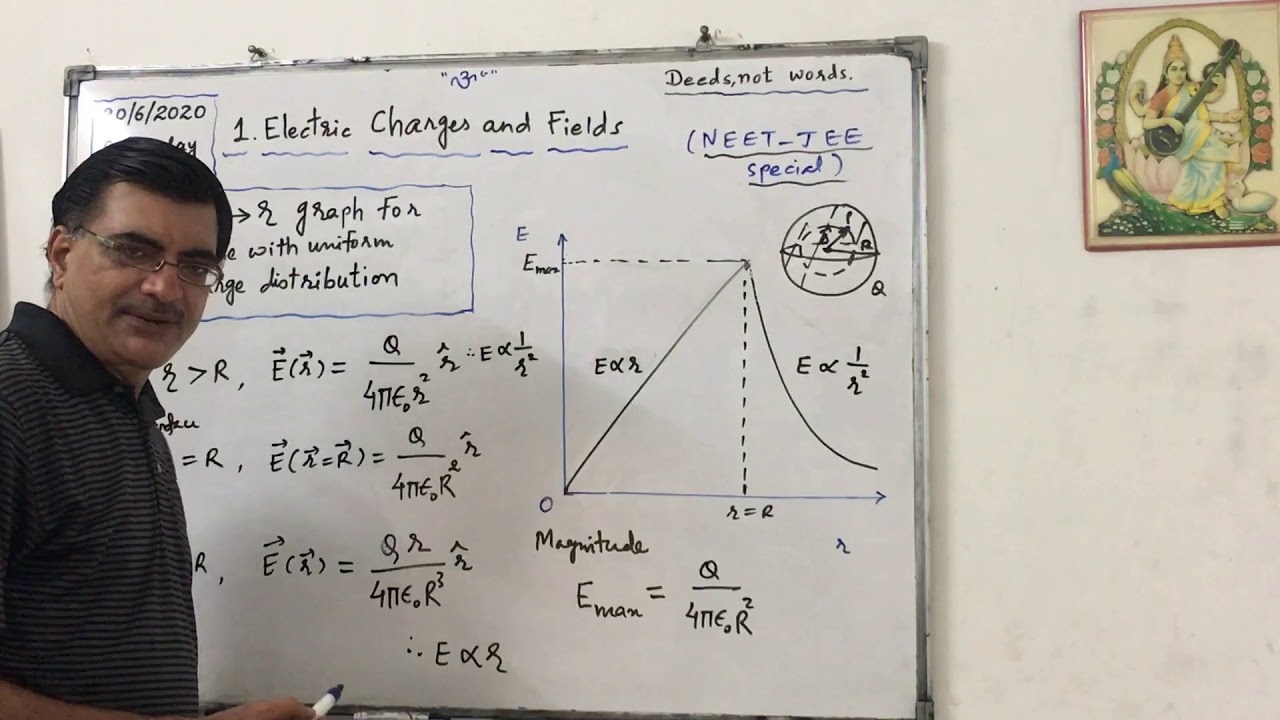 "ॐ"
Deeds, not words.
20/6/2020
1. Electric Charges and Fields
(NEET-JEE
special)
→ r graph for
with uniform
distribution
r > R, E⃗(r⃗) = Q/4πϵ₀r² r̂ ∴ E ∝ 1/r²
= R, E⃗(r⃗=R⃗) = Q/4πϵ₀R² r̂
R, E⃗(r⃗) = Qr/4πϵ₀R³ r̂
∴ E ∝ r
E
Emax
E ∝ r
E ∝ 1/r²
O
r = R
r
R
Q
Magnitude
Emax = Q/4πϵ₀R²